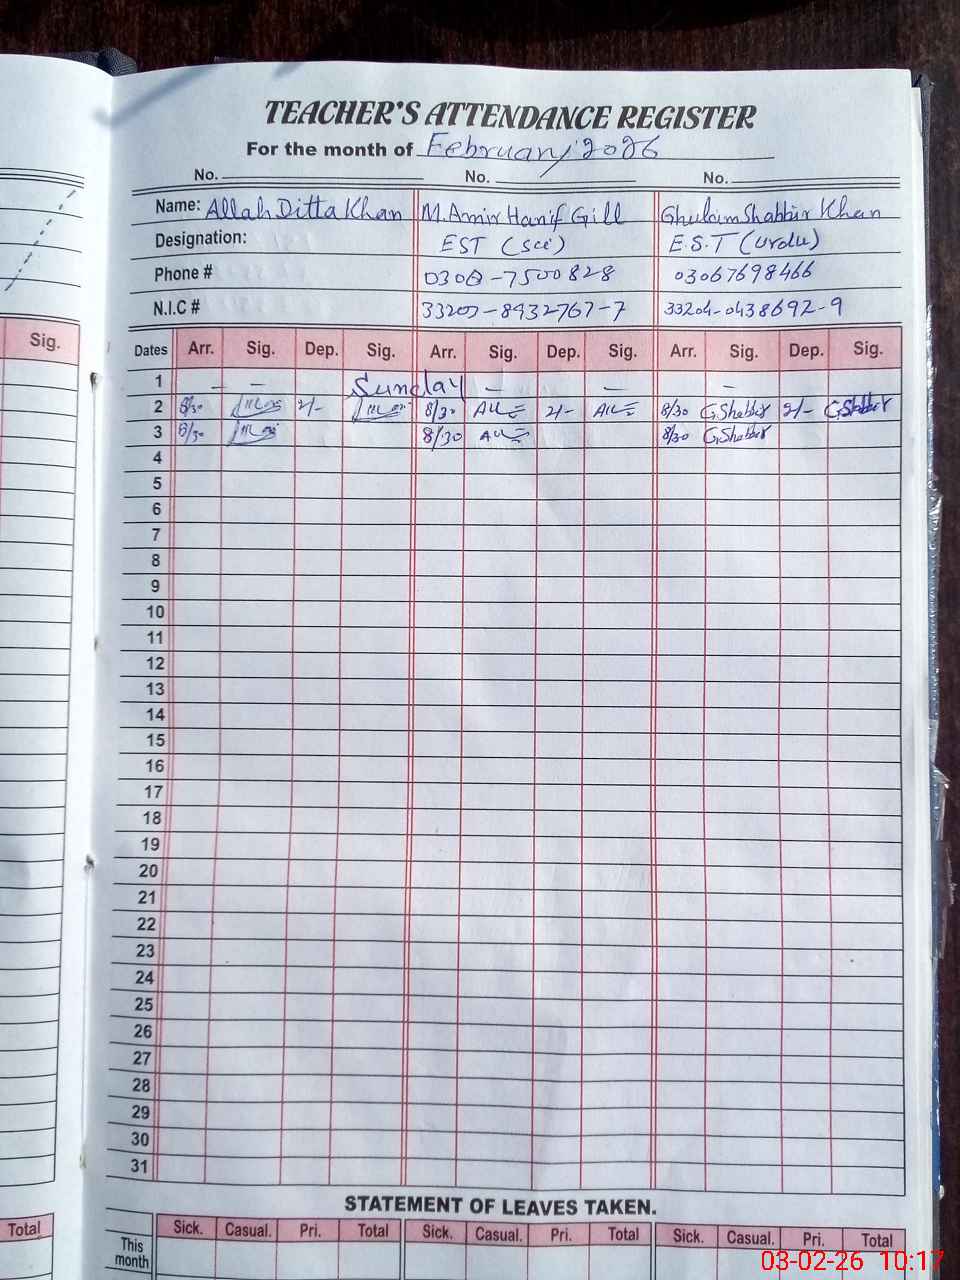 TEACHER'S ATTENDANCE REGISTER
For the month of February 2026
No. No. No.
Name: Allah Ditta Khan M. Amir Hanif Gill Ghulam Shabbir Khan
Designation: EST (sci) E.S.T (urdu)
Phone # 0300-7500828 03067698466
N.I.C # 33202-8432767-7 33204-0438692-9
Sig. Dates Arr. Sig. Dep. Sig. Arr. Sig. Dep. Sig. Arr. Sig. Dep. Sig.
1 — — Sunday — — —
2 8/30 2/- 8/30 2/- 8/30 G.Shabbir 2/- G.Shabbir
3 8/30 8/30 8/30 G.Shabbir
4
5
6
7
8
9
10
11
12
13
14
15
16
17
18
19
20
21
22
23
24
25
26
27
28
29
30
31
STATEMENT OF LEAVES TAKEN.
Total Sick. Casual. Pri. Total Sick. Casual. Pri. Total Sick. Casual. Pri. Total
This
month
03-02-26 10:17